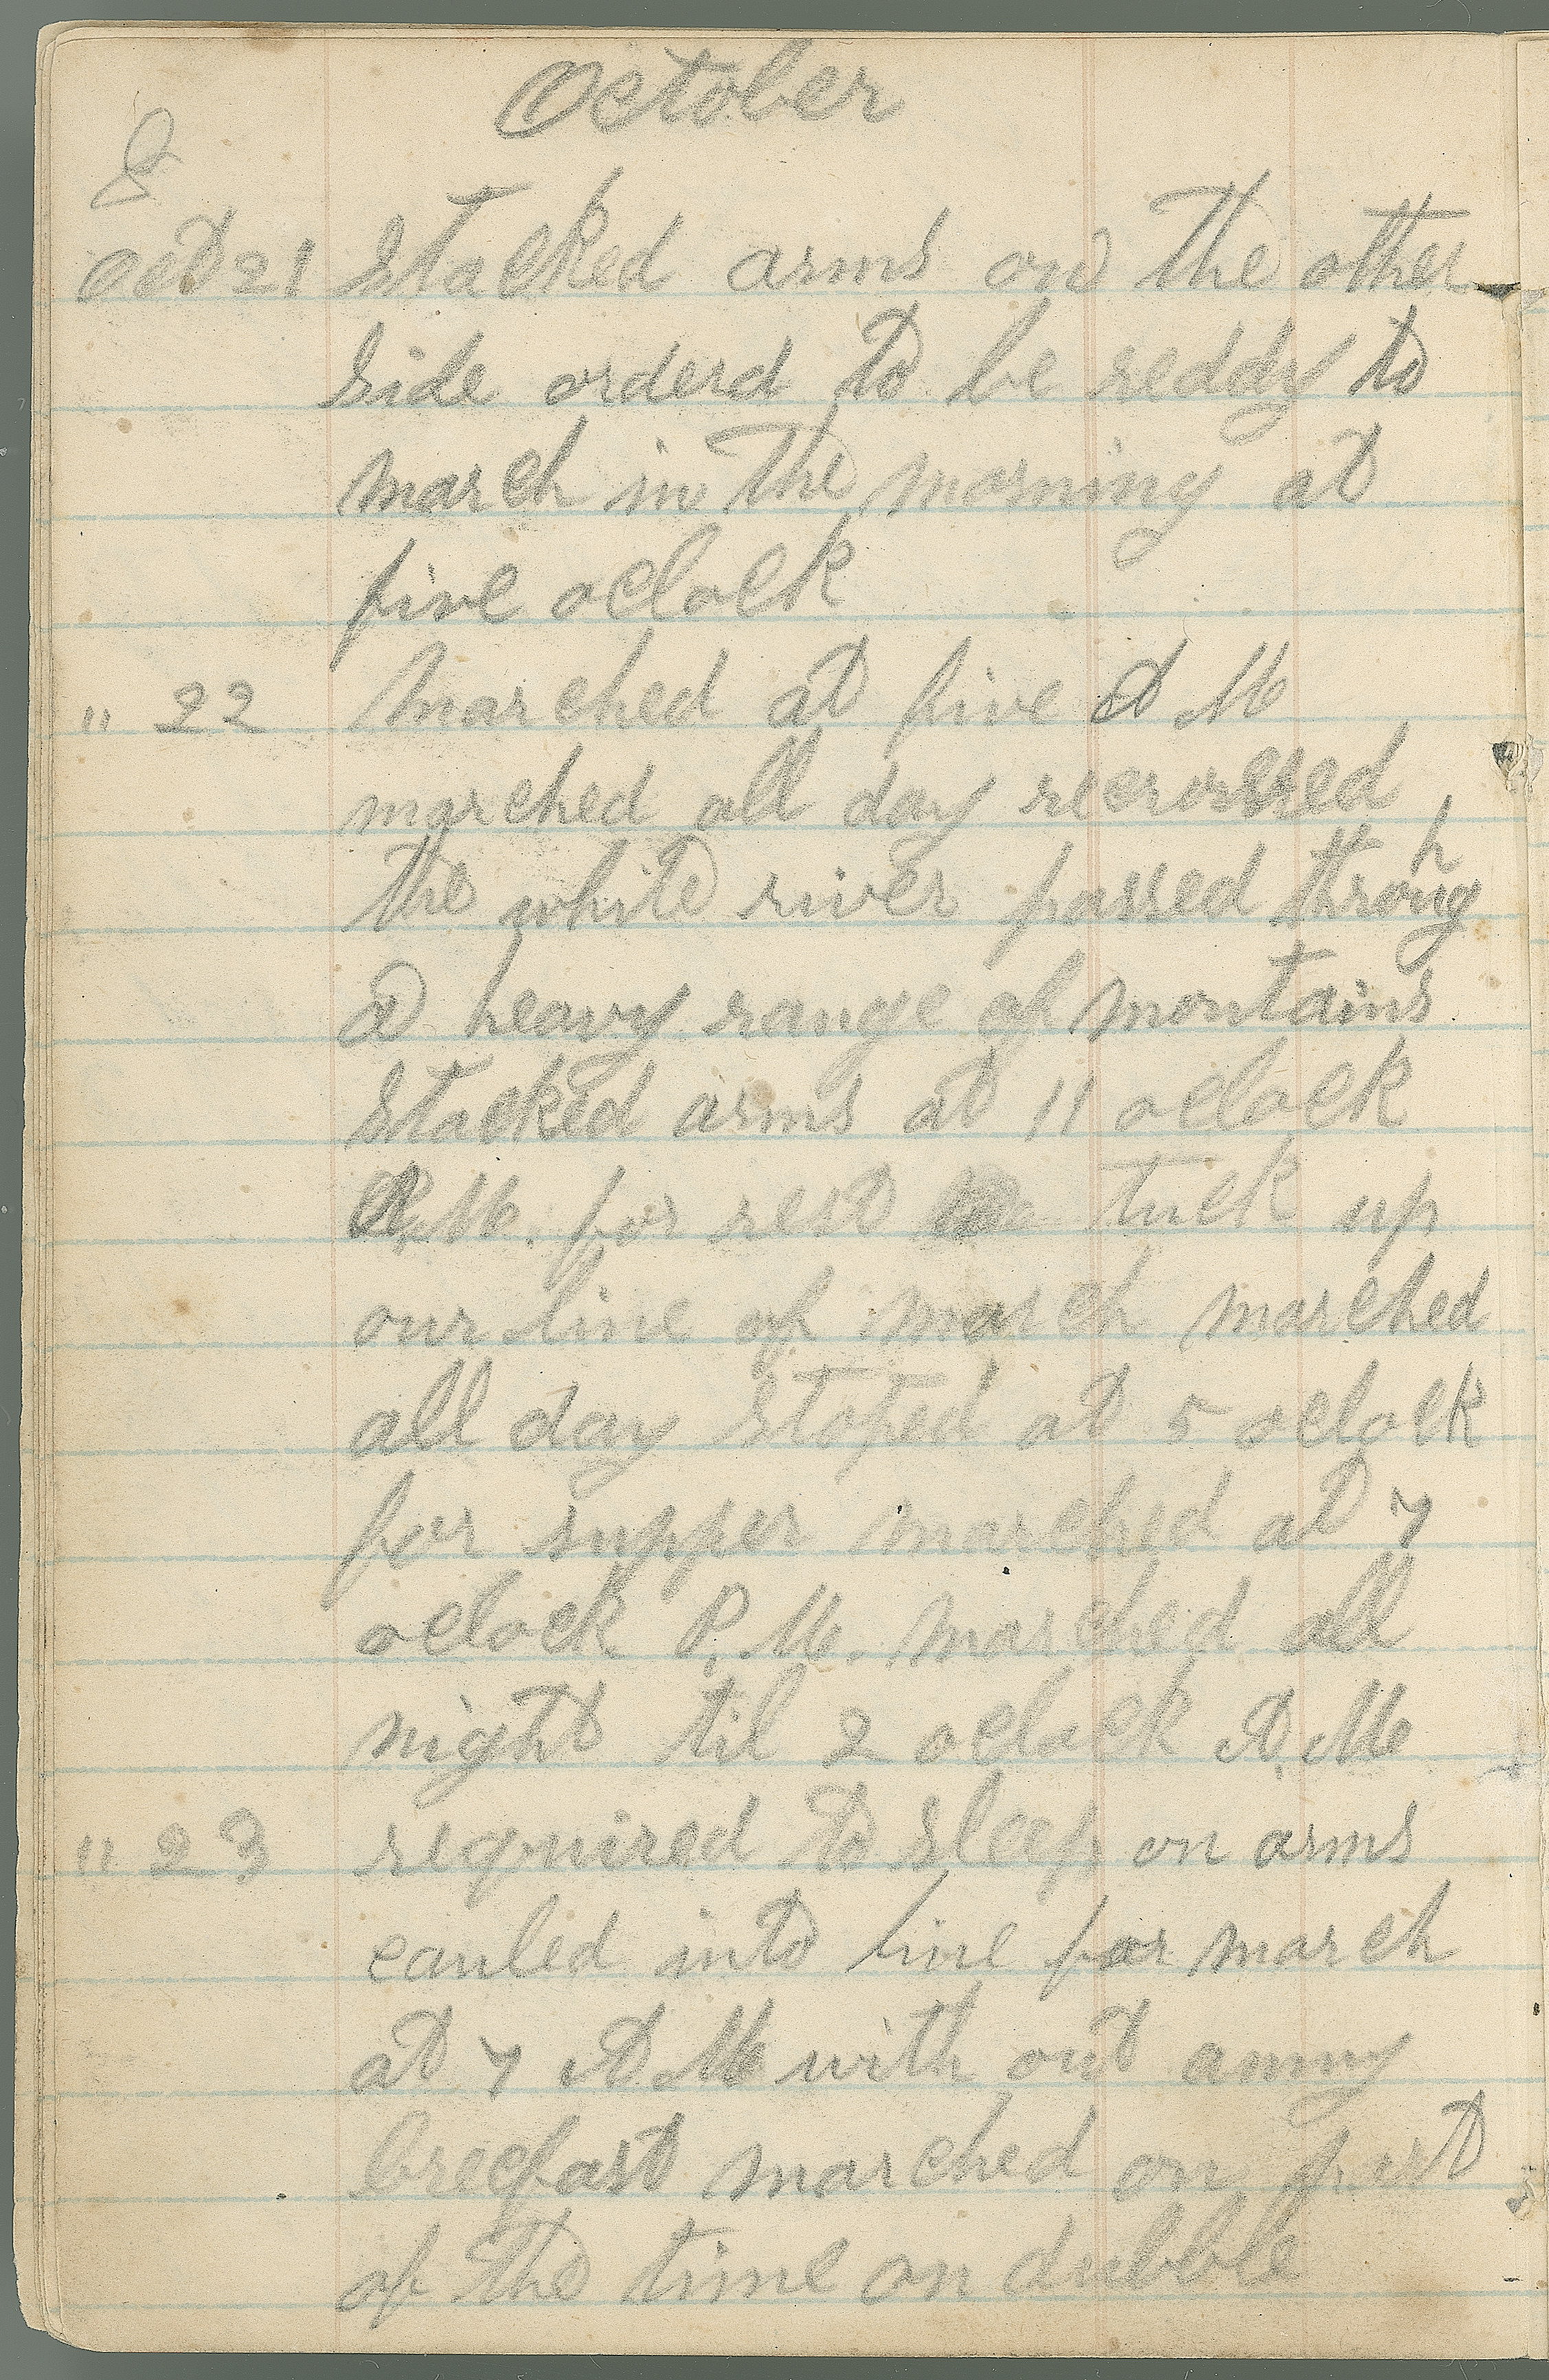 October
8
Oct 21 Stacked arms on the other
side orderd to be reddy to
march in the morning at
five oclock
" 22 Marched at five A M
marched all day recrossed
the white river passed throug h
a heavy range of montains
Stacked arms at 11 oclock
A.M. for rest tuck up
our line of march marched
all day stoped at 5 oclock
for supper marched at 7
oclock P.M. marched all
night til 2 oclock A.M
" 23 required to sleep on arms
cauled into line for march
at 7 A M with out anny
brecfast marched on part
of the time on dubble